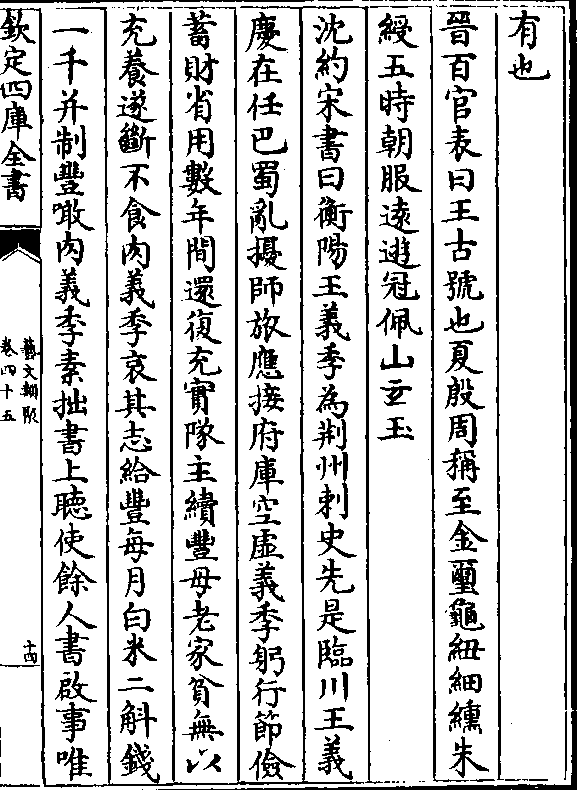 有也
晉百官表曰王古號也夏殷周稱至金璽龜紐細纁朱
綬五時朝服逺遊冠佩山玄玉
沈約宋書曰衡陽王義季為荆州刺史先是臨川王義
慶在任巴蜀亂擾師旅應接府庫空虛義季躬行節儉
蓄財省用數年間還復充實隊主續豐母老家貧無以
充養遂斷不食肉義季哀其志給豐每月白米二斛錢
一千并制豐噉肉義季素拙書上聽使餘人書啟事唯
欽定四庫全書
藝文類聚
卷四十五
十四